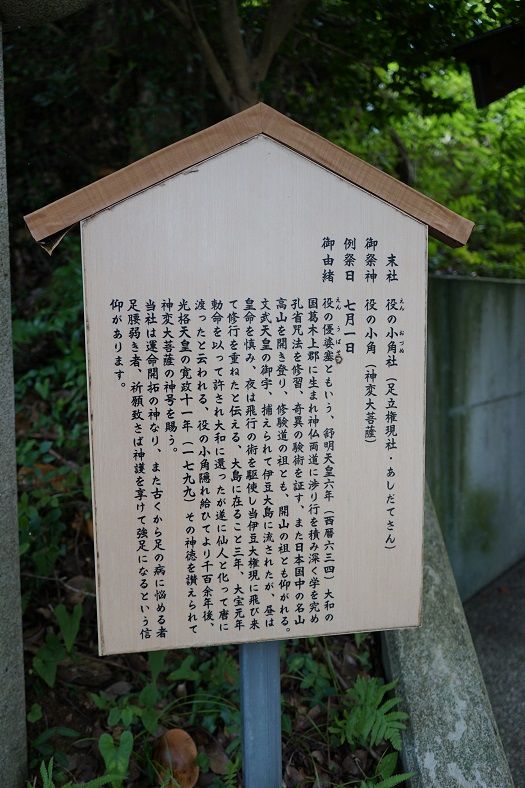 末社 役の小角社（足立権現社・あしだてさん）
えん おづぬ
御祭神 役の小角（神変大菩薩）
例祭日 七月一日
御由緒 役の優婆塞ともいう、舒明天皇六年（西暦六三四）大和の
えん うばそく
国葛木上郡に生まれ神仏両道に渉り行を積み深く学を究め
孔雀呪法を修習、奇異の験術を証す、また日本国中の名山
高山を開き登り、修験道の祖とも、開山の祖とも仰がれる。
文武天皇の御宇、捕えられて伊豆大島に流されたが、昼は
皇命を慎み、夜は飛行の術を駆使し当伊豆大権現に飛び来
て修行を重ねたと伝える、大島に在ること三年、大宝元年
勅命を以って許され大和に還ったが遂に仙人と化って唐に
渡ったと云われる、役の小角隠れ給ひてより千百余年後、
光格天皇の寛政十一年（一七九九）その神徳を讃えられて
神変大菩薩の神号を賜う。
当社は運命開拓の神なり、また古くから足の病に悩める者
足腰弱き者、祈願致さば神護を享けて強足になるという信
仰があります。